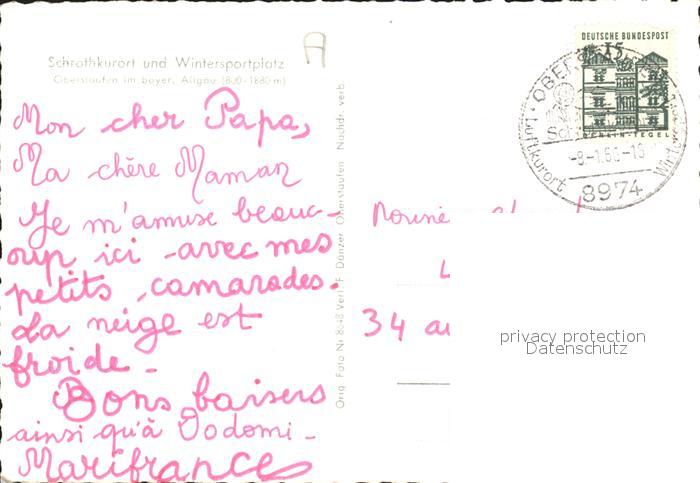 Schrothkurort und Wintersportplatz
Oberstaufen im bayer. Allgäu (800-1880 m)
Mon cher Papa,
Ma chère Maman
Je m'amuse beauc-
oup ici avec mes
petits camarades.
La neige est
froide -
Bons baisers
ainsi qu'à Dodomi -
Marifrance
Orig. Foto Nr. Verl. F. Dänzer Oberstaufen Nachdr. verb.
DEUTSCHE BUNDESPOST
15
BERLIN-TEGEL
Luftkurort
-8-1.66-18
8974
34
privacy protection
Datenschutz